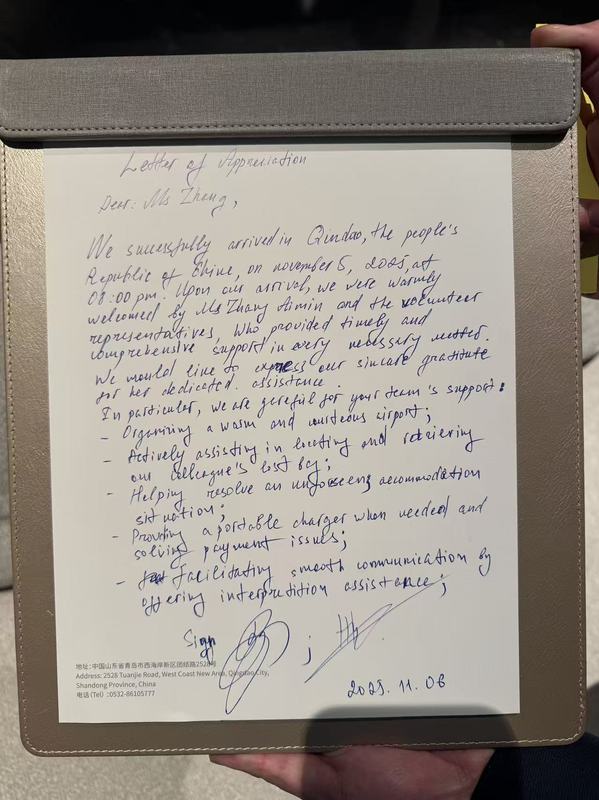 Letter of Appreciation
Dear: Ms Zhang,
We successfully arrived in Qindao, the people's
Republic of Chine, on november 5, 2025, at
08:00 pm. Upon our arrival, we were warmly
welcomed by Ms Zhang Aimin and the volunteer
representatives, who provided timely and
comprehensive support in every necessary metter.
We would line to express our sincare gratitute
for her dedicated assistance.
In particular, we are gereful for your team's support:
- Organizing a warm and curteous airport;
- Actively assisting in locating and retrieving
our colleague's lost bag;
- Helping resolve an unforseeng accomodation
situation;
- Providing a portable charger when needed and
solving payment issues;
- Facilitating smooth communication by
offering interpretition assistance;
Sign ;
地址:中国山东省青岛市西海岸新区团结路2528号
Address: 2528 Tuanjie Road, West Coast New Area, Qingdao City,
Shandong Province, China
电话 (Tel) :0532-86105777
2025. 11. 06